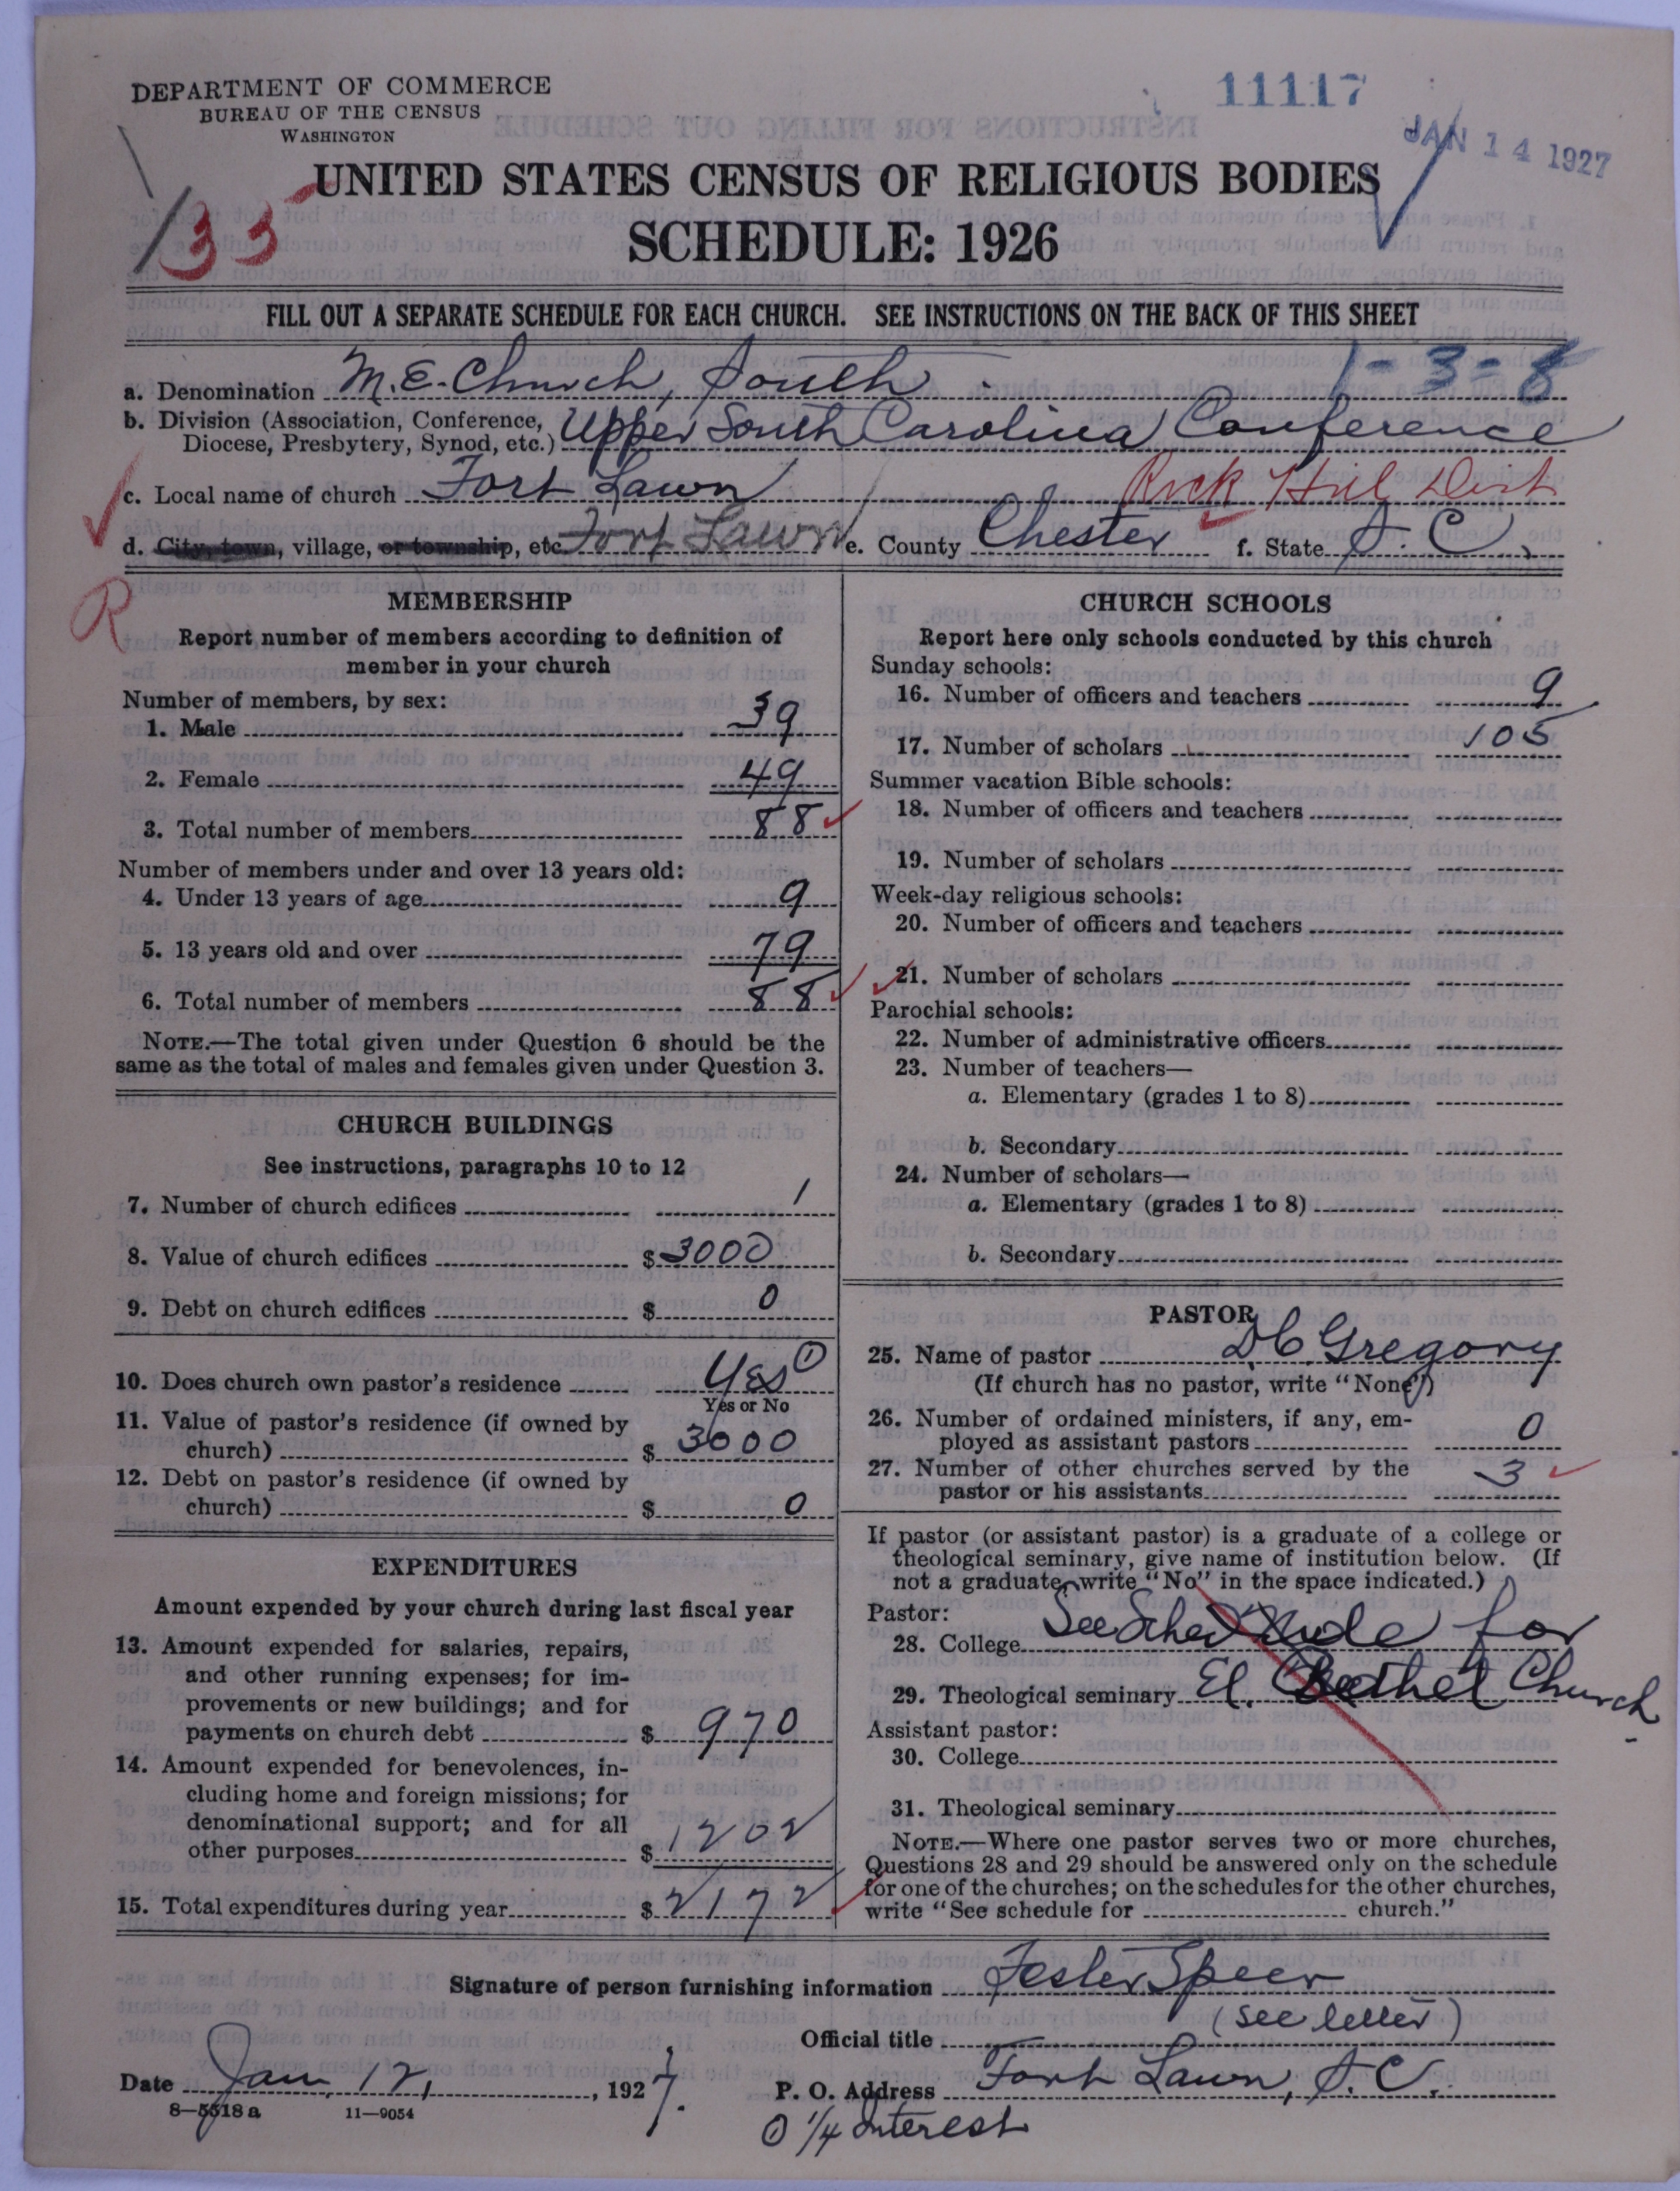 DEPARTMENT OF COMMERCE
BUREAU OF THE CENSUS
WASHINGTON
11117
JAN 14 1927
133
UNITED STATES CENSUS OF RELIGIOUS BODIES
SCHEDULE: 1926
FILL OUT A SEPARATE SCHEDULE FOR EACH CHURCH. SEE INSTRUCTIONS ON THE BACK OF THIS SHEET
1-3-8
a. Denomination M.E. Church, South
b. Division (Association, Conference, Diocese, Presbytery, Synod, etc.) Upper South Carolina Conference
c. Local name of church Fort Lawn Rock Hill Dist
d. City, town, village, or township, etc. Fort Lawn e. County Chester f. State S.C.
R
MEMBERSHIP
Report number of members according to definition of
member in your church
Number of members, by sex:
1. Male 39
2. Female 49
3. Total number of members 88
Number of members under and over 13 years old:
4. Under 13 years of age 9
5. 13 years old and over 79
6. Total number of members 88
NOTE.—The total given under Question 6 should be the
same as the total of males and females given under Question 3.
CHURCH BUILDINGS
See instructions, paragraphs 10 to 12
7. Number of church edifices 1
8. Value of church edifices $3000
9. Debt on church edifices $0
10. Does church own pastor's residence Yes ①
Yes or No
11. Value of pastor's residence (if owned by
church) $3000
12. Debt on pastor's residence (if owned by
church) $0
EXPENDITURES
Amount expended by your church during last fiscal year
13. Amount expended for salaries, repairs,
and other running expenses; for im-
provements or new buildings; and for
payments on church debt $970
14. Amount expended for benevolences, in-
cluding home and foreign missions; for
denominational support; and for all
other purposes $1202
15. Total expenditures during year $2172
CHURCH SCHOOLS
Report here only schools conducted by this church
Sunday schools:
16. Number of officers and teachers 9
17. Number of scholars 105
Summer vacation Bible schools:
18. Number of officers and teachers
19. Number of scholars
Week-day religious schools:
20. Number of officers and teachers
21. Number of scholars
Parochial schools:
22. Number of administrative officers
23. Number of teachers—
a. Elementary (grades 1 to 8)
b. Secondary
24. Number of scholars—
a. Elementary (grades 1 to 8)
b. Secondary
PASTOR
25. Name of pastor D C Gregory
(If church has no pastor, write "None")
26. Number of ordained ministers, if any, em-
ployed as assistant pastors 0
27. Number of other churches served by the
pastor or his assistants 3
If pastor (or assistant pastor) is a graduate of a college or
theological seminary, give name of institution below. (If
not a graduate, write "No" in the space indicated.)
Pastor:
28. College See Schedule for
29. Theological seminary El Bethel Church
Assistant pastor:
30. College
31. Theological seminary
NOTE.—Where one pastor serves two or more churches,
Questions 28 and 29 should be answered only on the schedule
for one of the churches; on the schedules for the other churches,
write "See schedule for church."
Signature of person furnishing information Foster Speer
(see letter)
Official title
Date Jan 12, 1927. P. O. Address Fort Lawn, S.C.
8—5518 a 11—9054
① 1/4 Interest